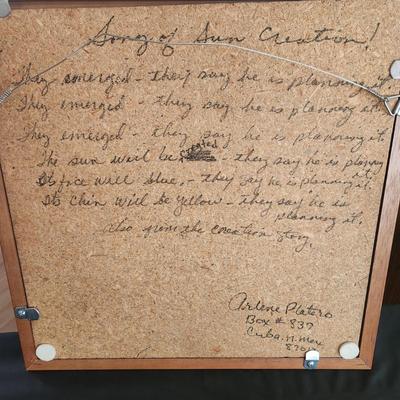 Song of Sun Creation!
They emerged - they say he is planning it.
They emerged - they say he is planning it.
They emerged - they say he is planning it.
The sun will be created - they say he is planning it.
Its face will blue. - they say he is planning it.
Its chin will be yellow - they say he is planning it.
Also from the creation story.
Arlene Platero
Box # 837
Cuba, N. Mex